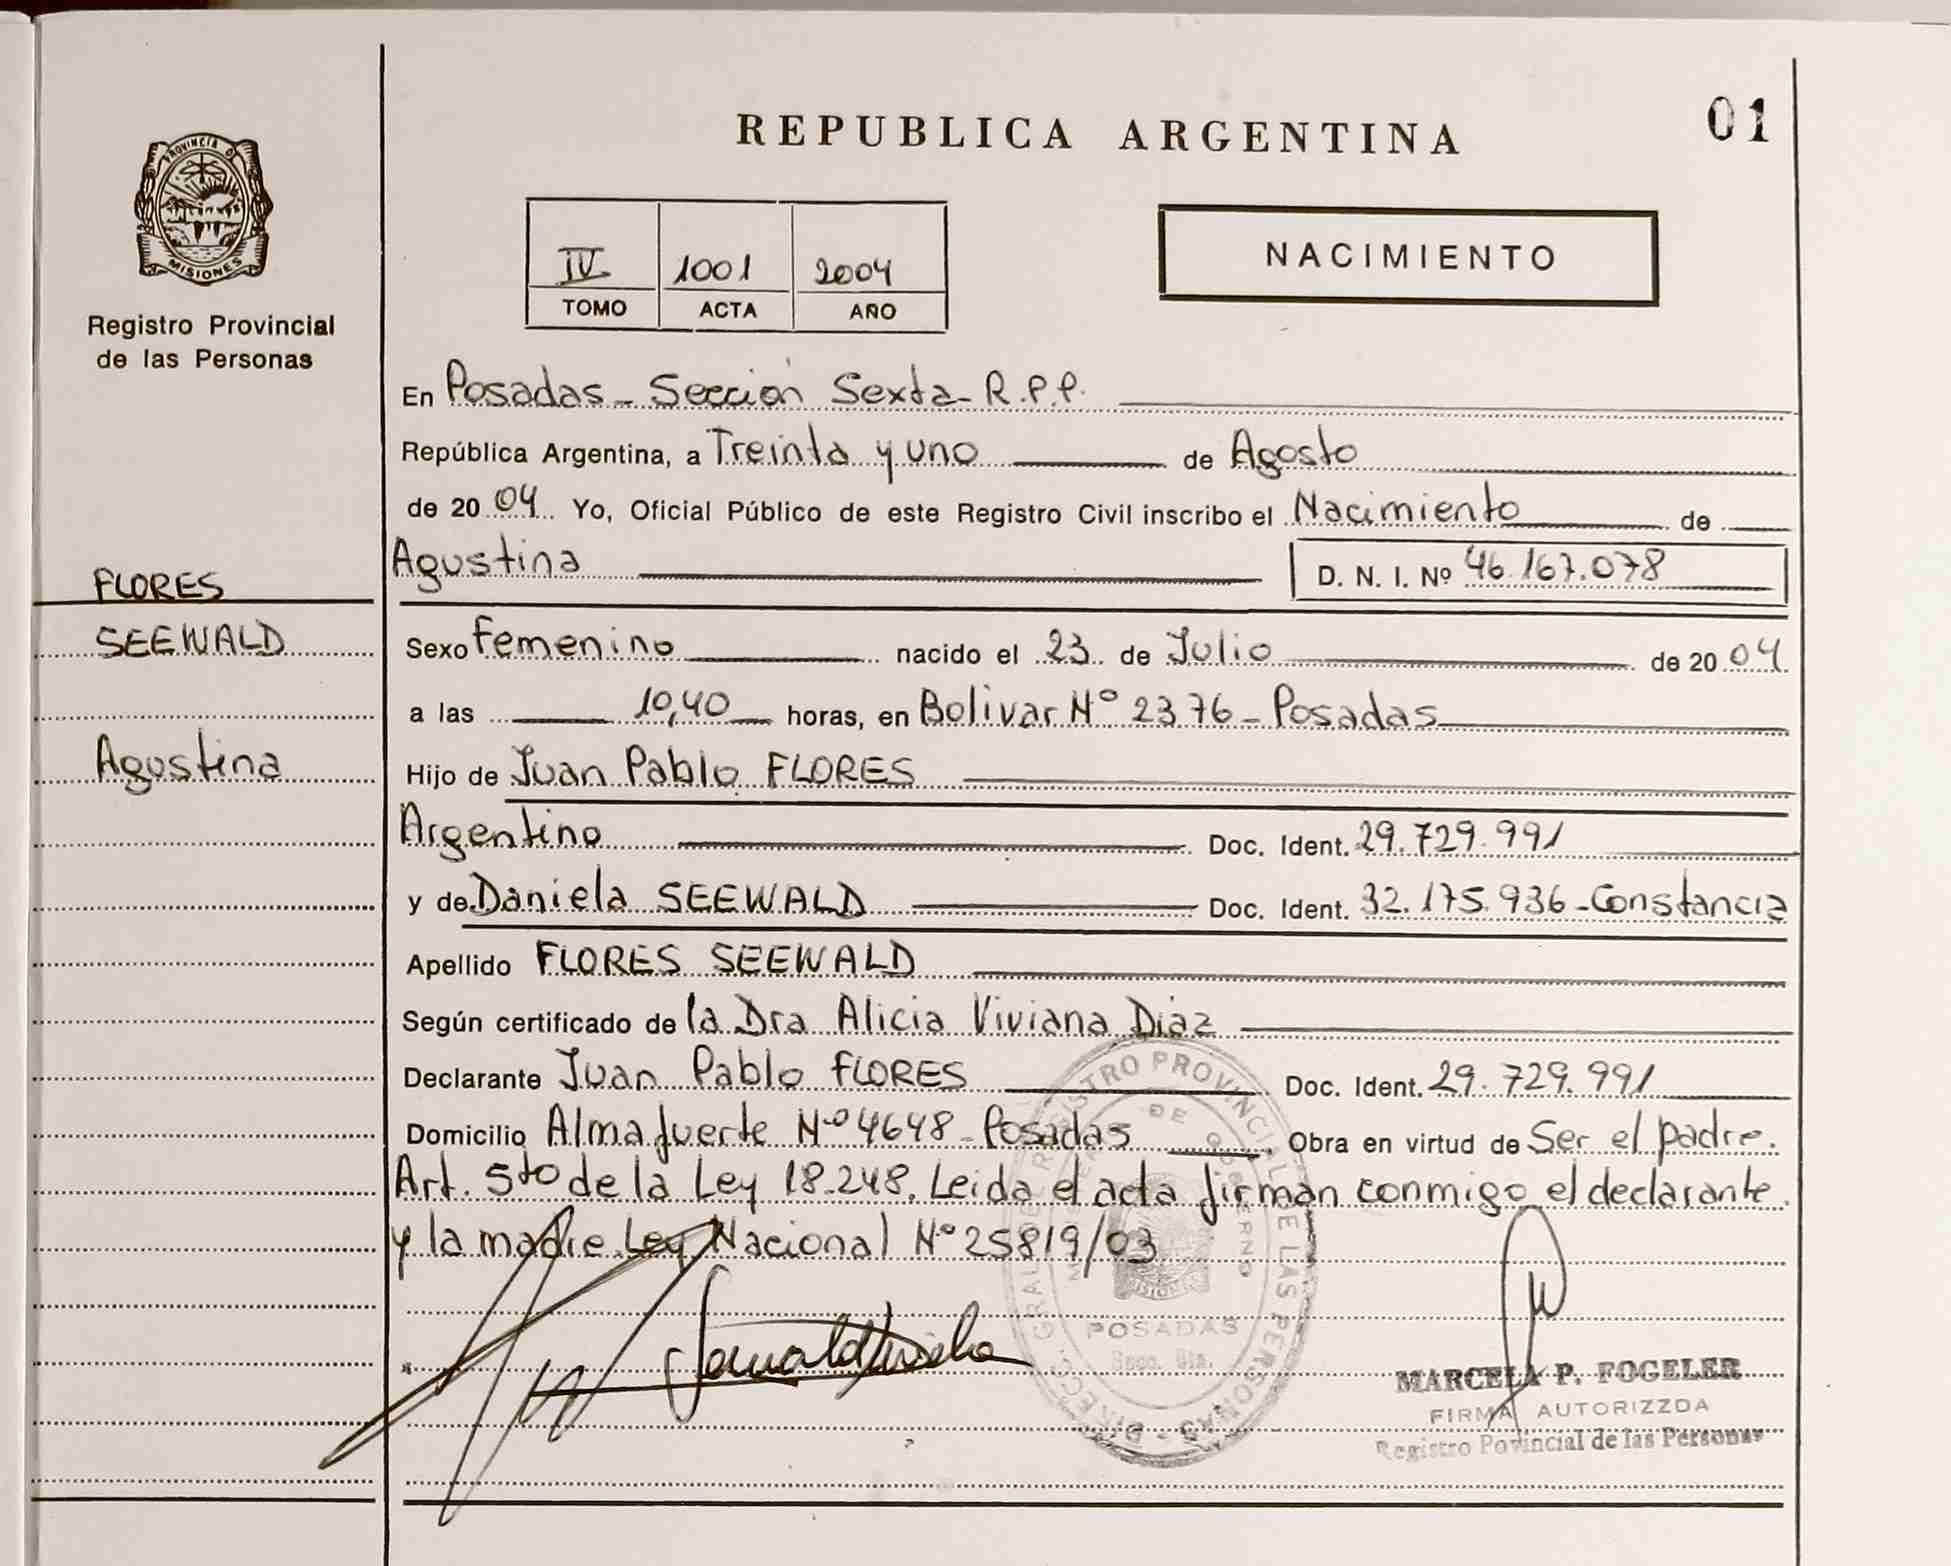 REPUBLICA ARGENTINA
01
PROVINCIA DE
MISIONES
Registro Provincial
de las Personas
IV 1001 2004
TOMO ACTA AÑO
NACIMIENTO
En Posadas - Sección Sexta - R.P.P.
República Argentina, a Treinta y uno de Agosto
de 2004 Yo, Oficial Público de este Registro Civil inscribo el Nacimiento de
Agustina D. N. I. Nº 46.167.078
FLORES
SEEWALD
Agustina
Sexo Femenino nacido el 23 de Julio de 2004
a las 10,40 horas, en Bolivar Nº 2376 - Posadas
Hijo de Juan Pablo FLORES
Argentino Doc. Ident. 29.729.991
y de Daniela SEEWALD Doc. Ident. 32.175.936 - Constancia
Apellido FLORES SEEWALD
Según certificado de la Dra Alicia Viviana Diaz
Declarante Juan Pablo FLORES Doc. Ident. 29.729.991
Domicilio Almafuerte Nº 4648 - Posadas Obra en virtud de Ser el padre.
Art. 5to de la Ley 18.248. Leida el acta firman conmigo el declarante
y la madre. Ley Nacional Nº 25819/03
REGISTRO PROVINCIAL DE LAS PERSONAS
DE GOBIERNO
MISIONES
POSADAS
MARCELA P. FOGELER
FIRMA AUTORIZZDA
Registro Povincial de las Personas